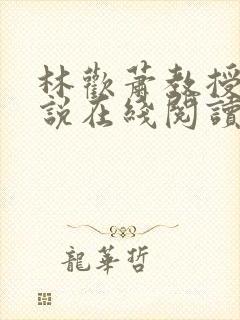 林歡蕭教授
說在綫閱讀
龍華哲